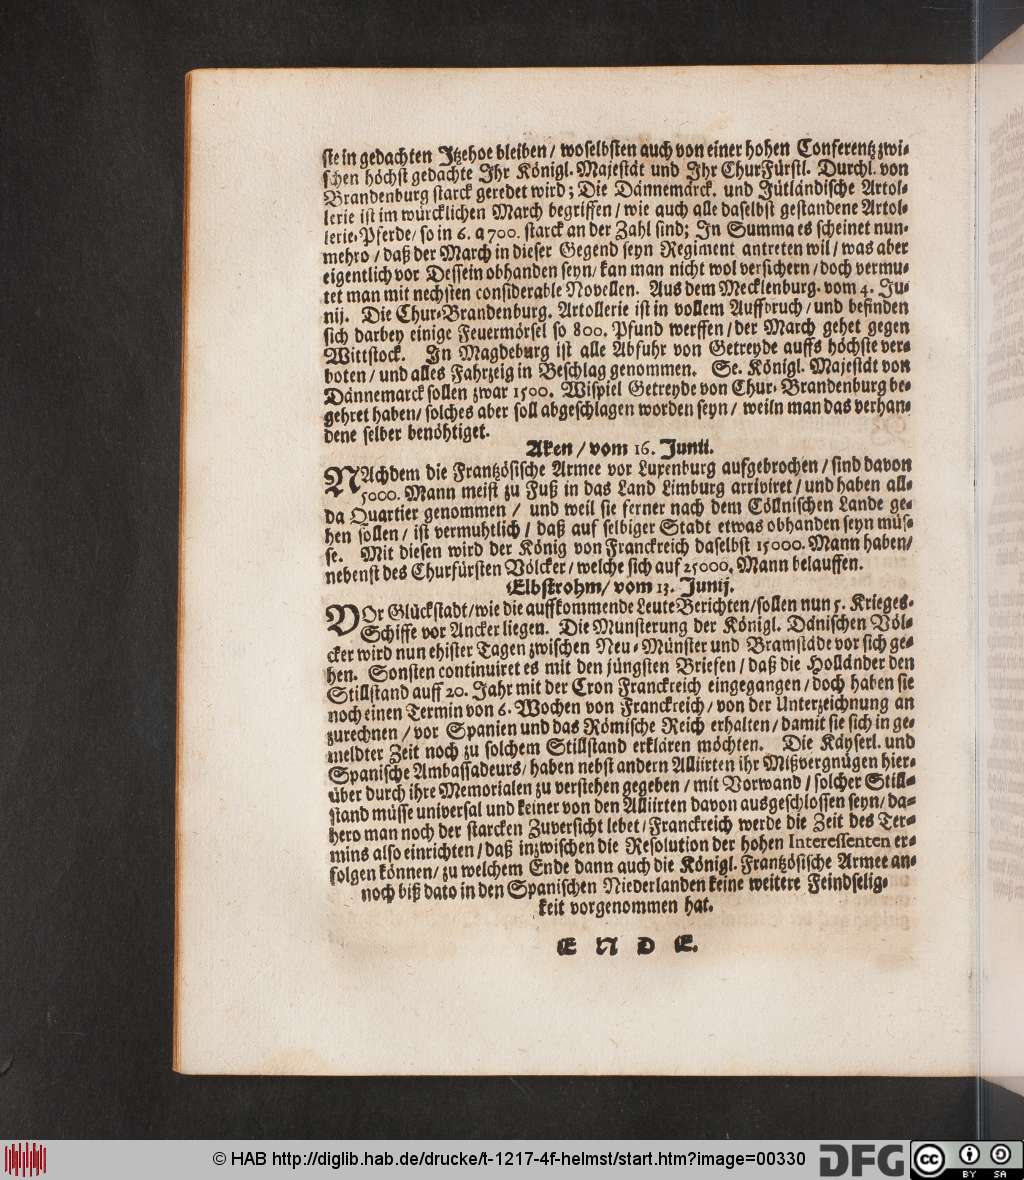 ste in gedachten Jtzehoe bleiben / woselbsten auch von einer hohen Conferentz zwi-
schen höchst gedachte Jhr Königl. Majestät und Jhr ChurFürstl. Durchl. von
Brandenburg starck geredet wird; Die Dännemarck. und Jütländische Artol-
lerie ist im würcklichen March begriffen / wie auch alle daselbst gestandene Artol-
lerie-Pferde / so in 6. a 700. starck an der Zahl sind; Jn Summa es scheinet nun-
mehro / daß der March in dieser Gegend seyn Regiment antreten wil / was aber
eigentlich vor Dessein obhanden seyn / kan man nicht wol versichern / doch vermu-
tet man mit nechsten considerable Novellen. Aus dem Mecklenburg. vom 4. Ju-
nij. Die Chur-Brandenburg. Artollerie ist in vollem Auffbruch / und befinden
sich darbey einige Feuermörsel so 800. Pfund werffen / der March gehet gegen
Wittstock. Jn Magdeburg ist alle Abfuhr von Getreyde auffs höchste ver-
boten / und alles Fahrzeig in Beschlag genommen. Se. Königl. Majestät von
Dännemarck sollen zwar 1500. Wispiel Getreyde von Chur-Brandenburg be-
gehret haben / solches aber soll abgeschlagen worden seyn / weiln man das verhan-
dene selber benöhtiget.
Aken / vom 16. Junii.
NAchdem die Frantzösische Armee vor Luxenburg aufgebrochen / sind davon
5000. Mann meist zu Fuß in das Land Limburg arriviret / und haben all-
da Quartier genommen / und weil sie ferner nach dem Cöllnischen Lande ge-
hen sollen / ist vermuhtlich / daß auf selbiger Stadt etwas obhanden seyn müs-
se. Mit diesen wird der König von Franckreich daselbst 15000. Mann haben /
nebenst des Churfürsten Völcker / welche sich auf 25000. Mann belauffen.
Elbstrohm / vom 13. Junij.
VOr Glückstadt / wie die auffkommende Leute Berichten / sollen nun 5. Krieges-
Schiffe vor Ancker liegen. Die Munsterung der Königl. Dänischen Völ-
cker wird nun ehister Tagen zwischen Neu-Münster und Bramstäde vor sich ge-
hen. Sonsten continuiret es mit den jüngsten Briefen / daß die Holländer den
Stillstand auff 20. Jahr mit der Cron Franckreich eingegangen / doch haben sie
noch einen Termin von 6. Wochen von Franckreich / von der Unterzeichnung an
zurechnen / vor Spanien und das Römische Reich erhalten / damit sie sich in ge-
meldter Zeit noch zu solchem Stillstand erklären möchten. Die Käyserl. und
Spanische Ambassadeurs / haben nebst andern Alliirten ihr Mißvergnügen hier-
über durch ihre Memorialen zu verstehen gegeben / mit Vorwand / solcher Still-
stand müsse universal und keiner von den Alliirten davon ausgeschlossen seyn / da-
hero man noch der starcken Zuversicht lebet / Franckreich werde die Zeit des Ter-
mins also einrichten / daß inzwischen die Resolution der hohen Interessenten er-
folgen können / zu welchem Ende dann auch die Königl. Frantzösische Armee an-
noch biß dato in den Spanischen Niederlanden keine weitere Feindselig-
keit vorgenommen hat.
E N D E.
© HAB http://diglib.hab.de/drucke/t-1217-4f-helmst/start.htm?image=00330
DFG
cc BY SA